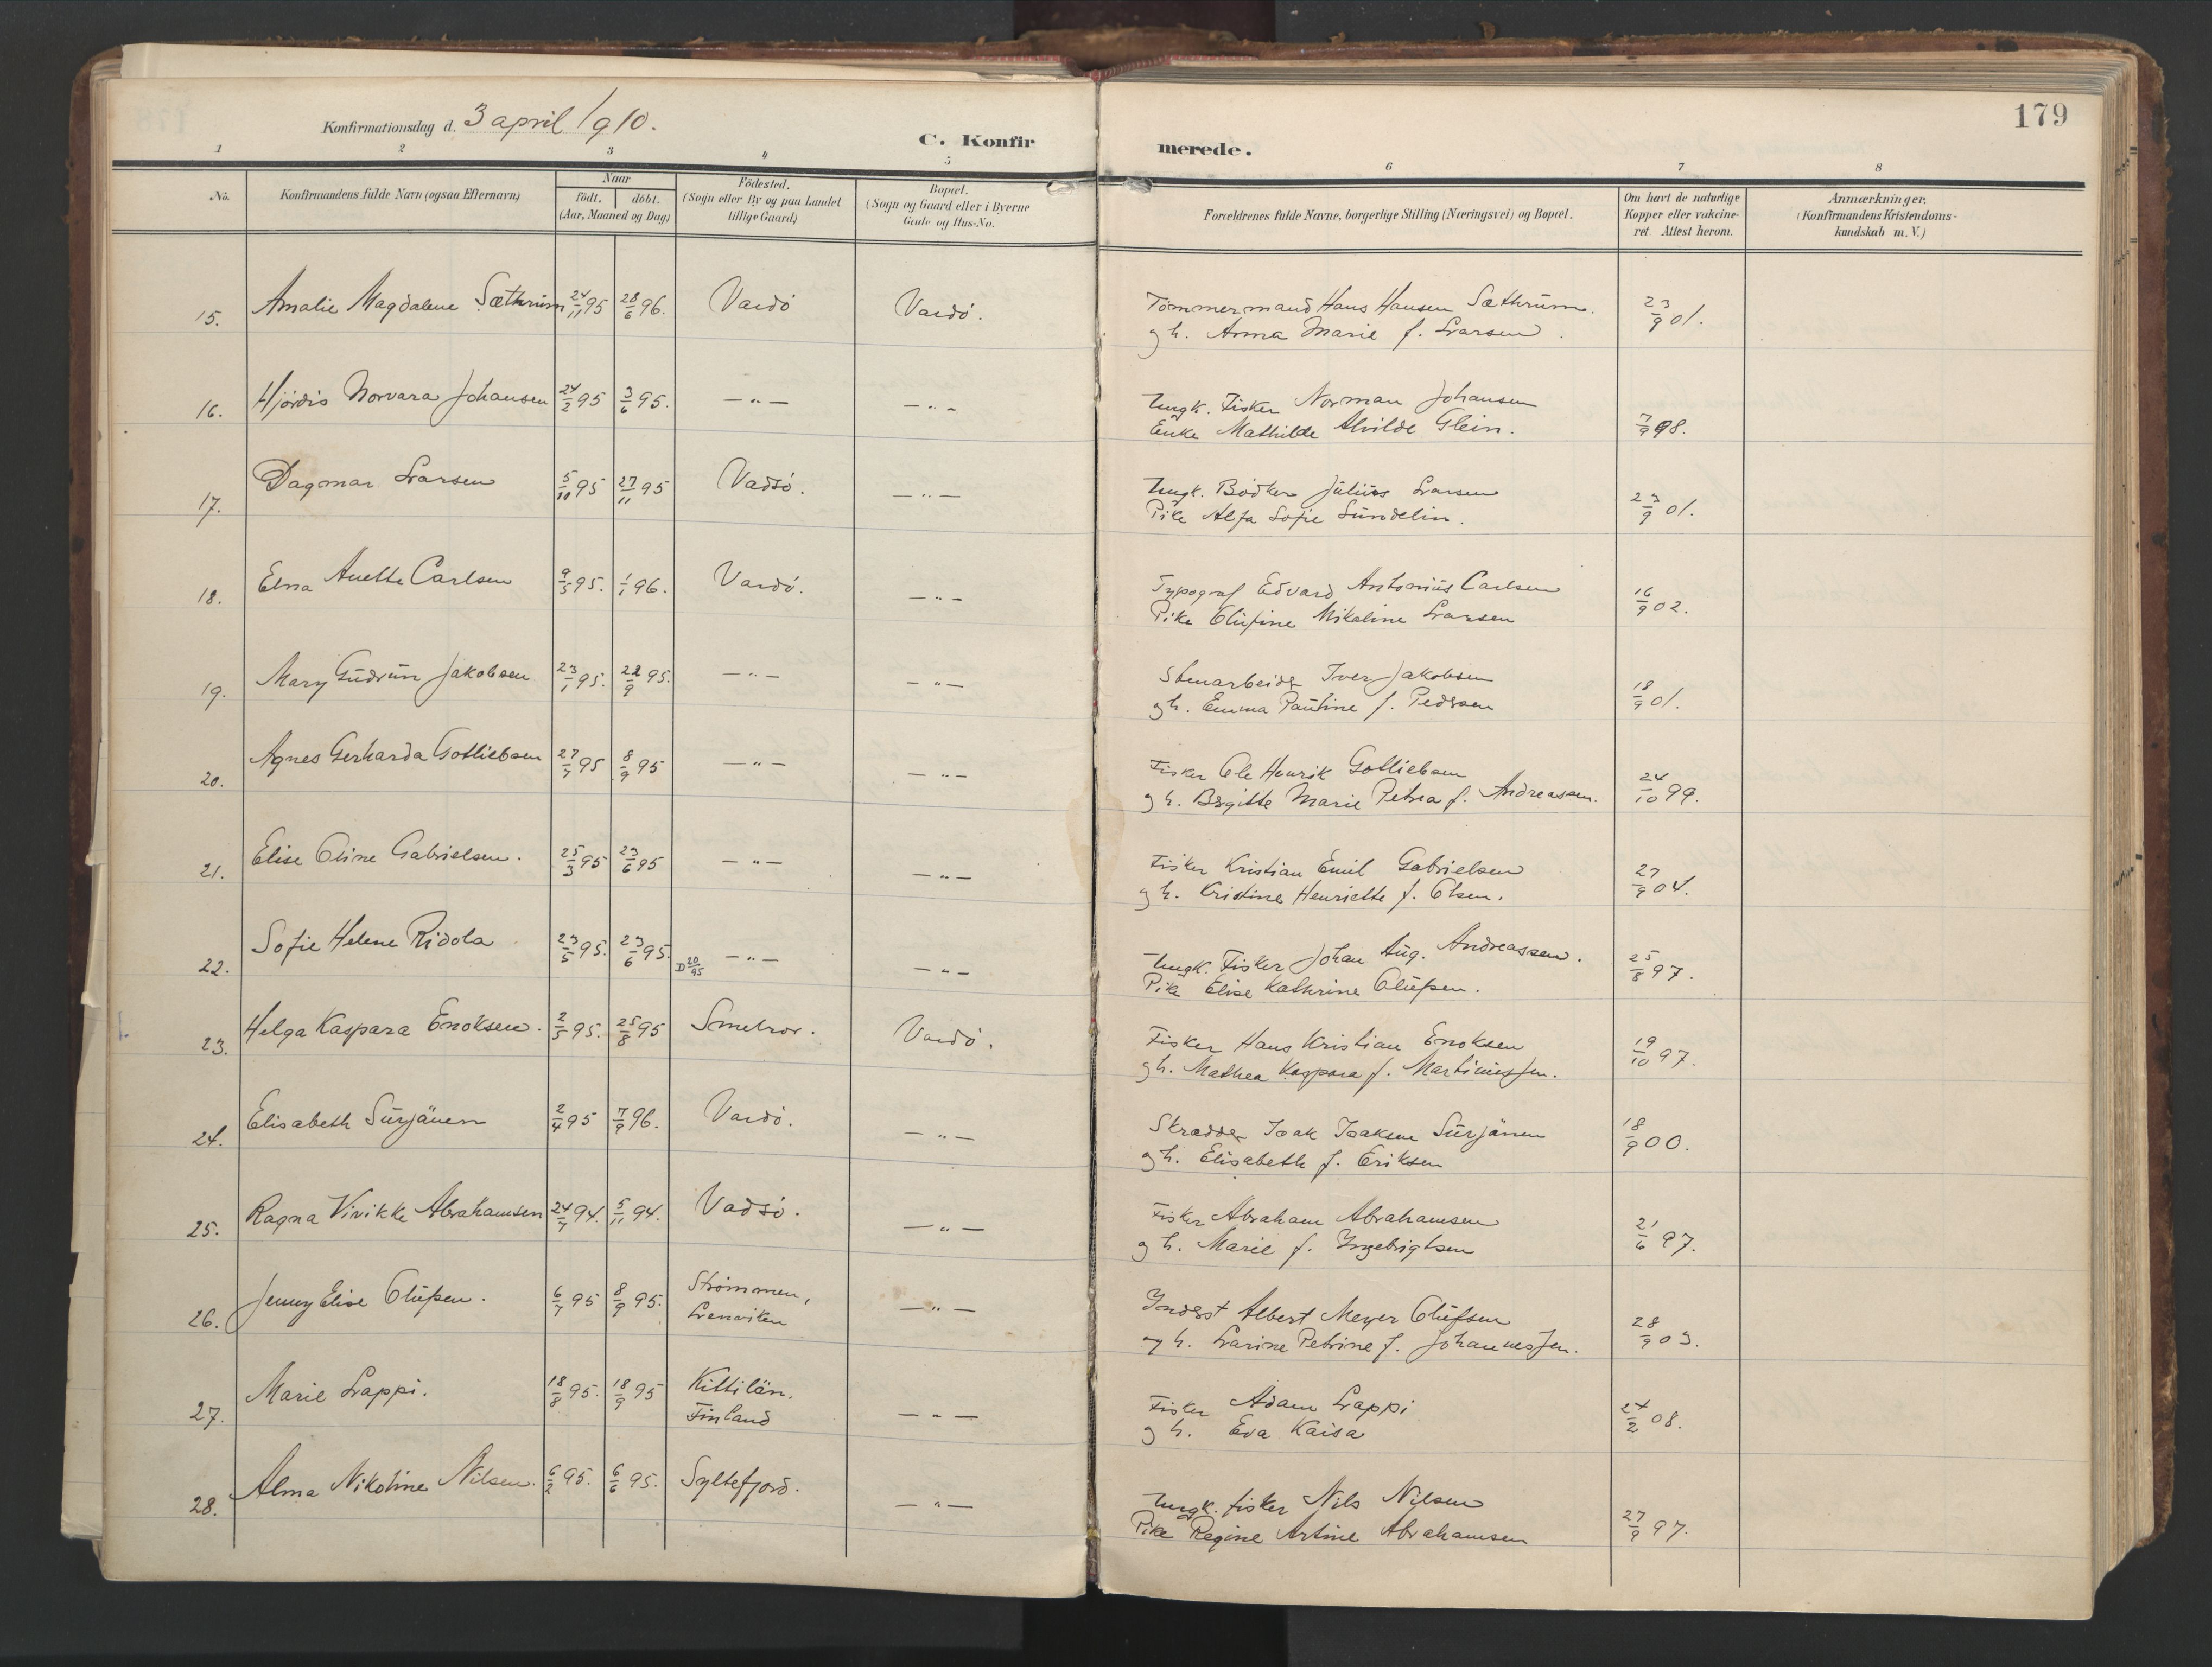 179
Konfirmationsdag d. 3 april 1910.
C. Konfirmerede.
1 2 3 4 5 6 7 8
No. Konfirmandens fulde Navn (ogsaa Efternavn) Naar födt. döbt. (Aar, Maaned og Dag) Födested. (Sogn eller By og paa Landet tillige Gaard) Bopæl. (Sogn og Gaard eller i Byerne Gade og Hus-No. Forældrenes fulde Navne, borgerlige Stilling (Næringsvei) og Bopæl. Om havt de naturlige Kopper eller vakcineret. Attest herom. Anmærkninger. (Konfirmandens Kristendomskundskab m. V.)
15. Amalie Magdalene Sæthrum 24/11 95 28/6 96. Vardö Vardö. Tömmermand Hans Hansen Sæthrum. 23/9 01.
g h. Anna Marie f. Larsen.
16. Hjördis Norvara Johansen 24/2 95 3/6 95. —"— —"— Ungk. Fisker Norman Johansen
Enke Mathilde Alvilde Glein. 7/9 98.
17. Dagmar Larsen 5/10 95 27/11 95 Vadsö. —"— Ungk. Bödker Julius Larsen
Pike Alfa Sofie Sundelin. 23/9 01.
18. Elna Anette Carlsen 9/5 95. 1/1 96. Vardö. —"— Typograf Edvard Antonius Carlsen
Pike Olufine Nikoline Larsen 16/9 02.
19. Mary Gudrun Jakobsen 23/1 95. 22/9 95. —"— —"— Stenarbeider Iver Jakobsen
g h. Emma Pauline f. Pedersen 18/9 01.
20. Agnes Gerharda Gottliebsen 27/7 95 8/9 95 —"— —"— Fisker Ole Henrik Gottliebsen
g h. Brgitte Marie Petrea f. Andreassen. 24/10 99.
21. Elise Oline Gabrielsen. 25/3 95 23/6 95 —"— —"— Fisker Kristian Emil Gabrielsen
g h. Kristine Henriette f. Olsen. 27/9 04.
22. Sofie Helene Ridola 23/5 95. 23/6 95. D 20/95 —"— —"— Ungk. Fisker Johan Aug. Andreassen.
Pike Elise Kathrine Olufsen. 25/8 97.
23. Helga Kaspara Enoksen. 2/5 95. 25/8 95 Smelror. Vardö. Fisker Hans Kristian Enoksen
g h. Mathea Kaspara f. Martinussen. 19/10 97.
24. Elisabeth Surjänen 2/4 95 7/9 96. Vardö. —"— Skrædder Isak Isaksen Surjänen
g h. Elisabeth f. Eriksen 18/9 00.
25. Ragna Vivikke Abrahamsen 24/7 94. 5/11 94. Vadsö. —"— Fisker Abraham Abrahamsen
g h. Marie f. Ingebrigtsen 21/6 97.
26. Jenny Elise Olufsen. 6/7 95 8/9 95. Strömmen, Lenviken —"— Inderst Albert Meyer Olufsen
og h. Larine Petrine f. Johannessen. 28/9 03.
27. Marie Lappi. 18/8 95. 18/9 95 Kittilän. Finland —"— Fisker Adam Lappi
g h. Eva Kaisa 24/2 08.
28. Alma Nikoline Nilsen. 6/2 95. 6/6 95. Syltefjord. —"— Ungk. fisker Nils Nilsen
Pike Regine Artine Abrahamsen 27/9 97.